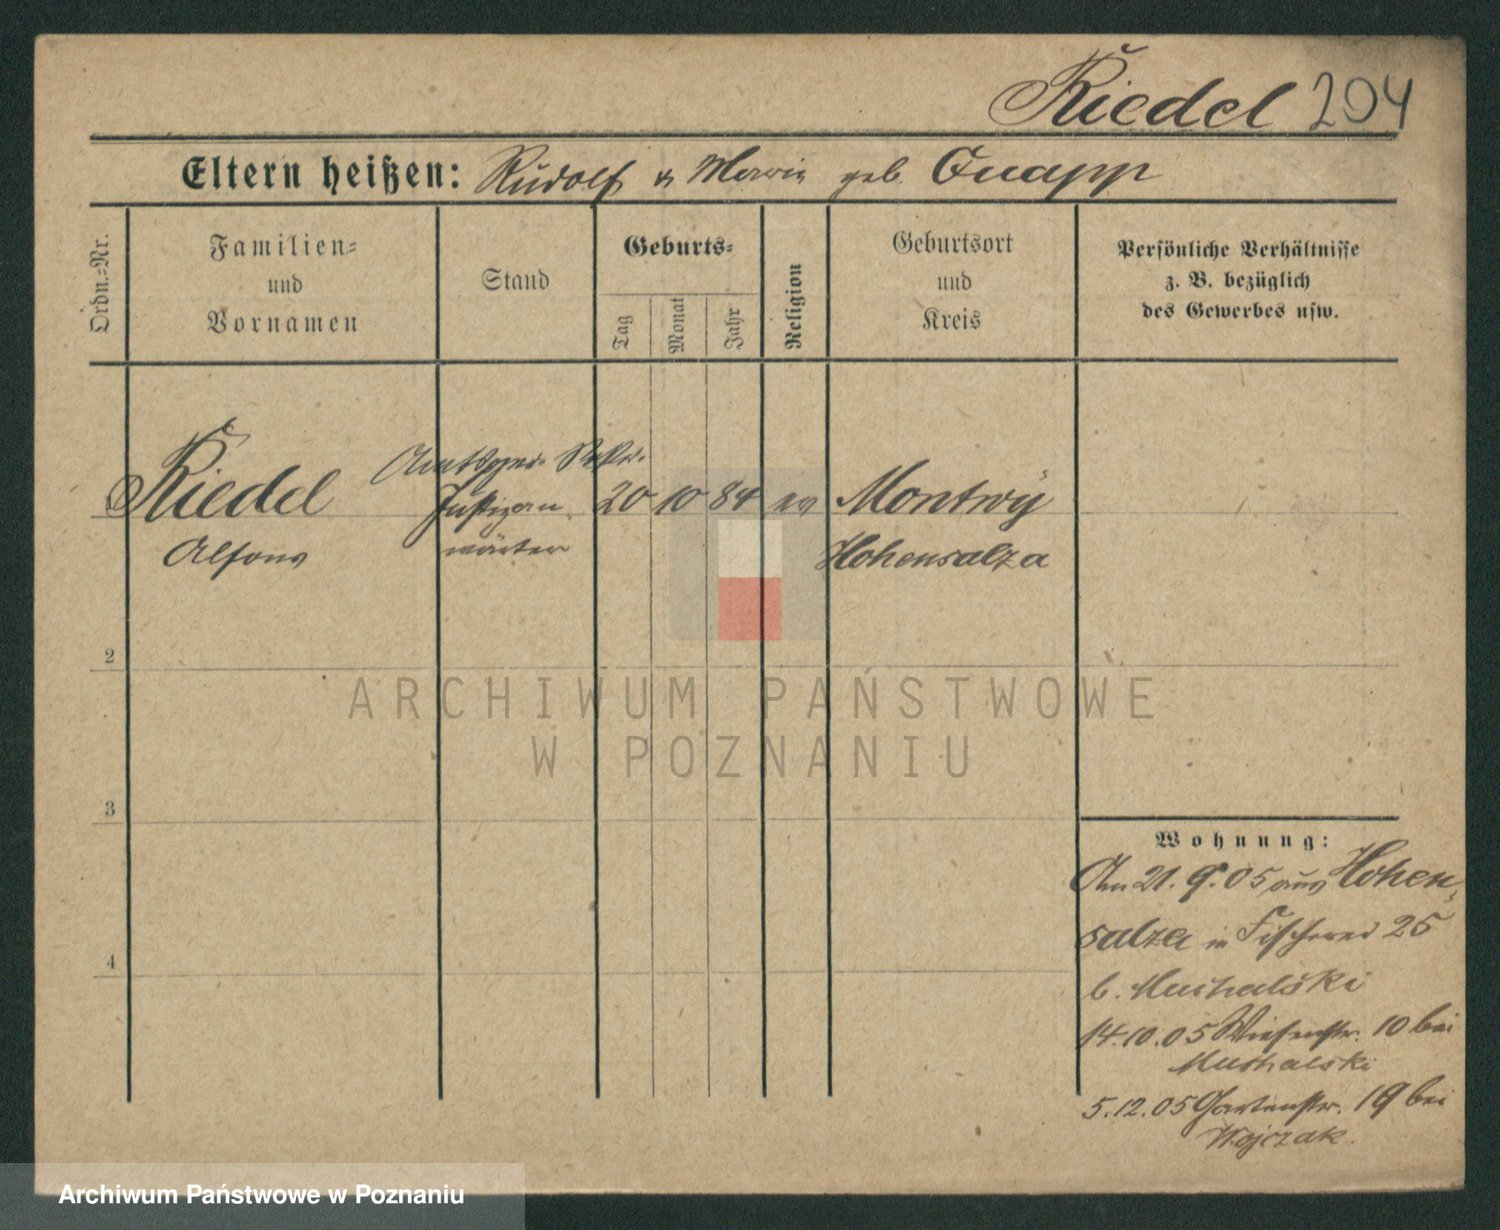 Riedel 204
Eltern heißen: Rudolf u Marie geb. Quapp
Ordn.-Nr.
Familien-
und
Vornamen
Stand
Geburts-
Tag
Monat
Jahr
Religion
Geburtsort
und
Kreis
Persönliche Verhältnisse
z. B. bezüglich
des Gewerbes usw.
Amtsger. Sekr.
Riedel Justizan 20 10 84 ev Montwy
Alfons wärter Hohensalza
2
3
4
ARCHIWUM PAŃSTWOWE
W POZNANIU
Wohnung:
Am 21. 9. 05 aus Hohen-
salza in Fischerei 25
b. Musialski
14.10.05 Wiesenstr. 10 bei
Musialski
5.12.05 Gartenstr. 19 bei
Wojczak.
Archiwum Państwowe w Poznaniu